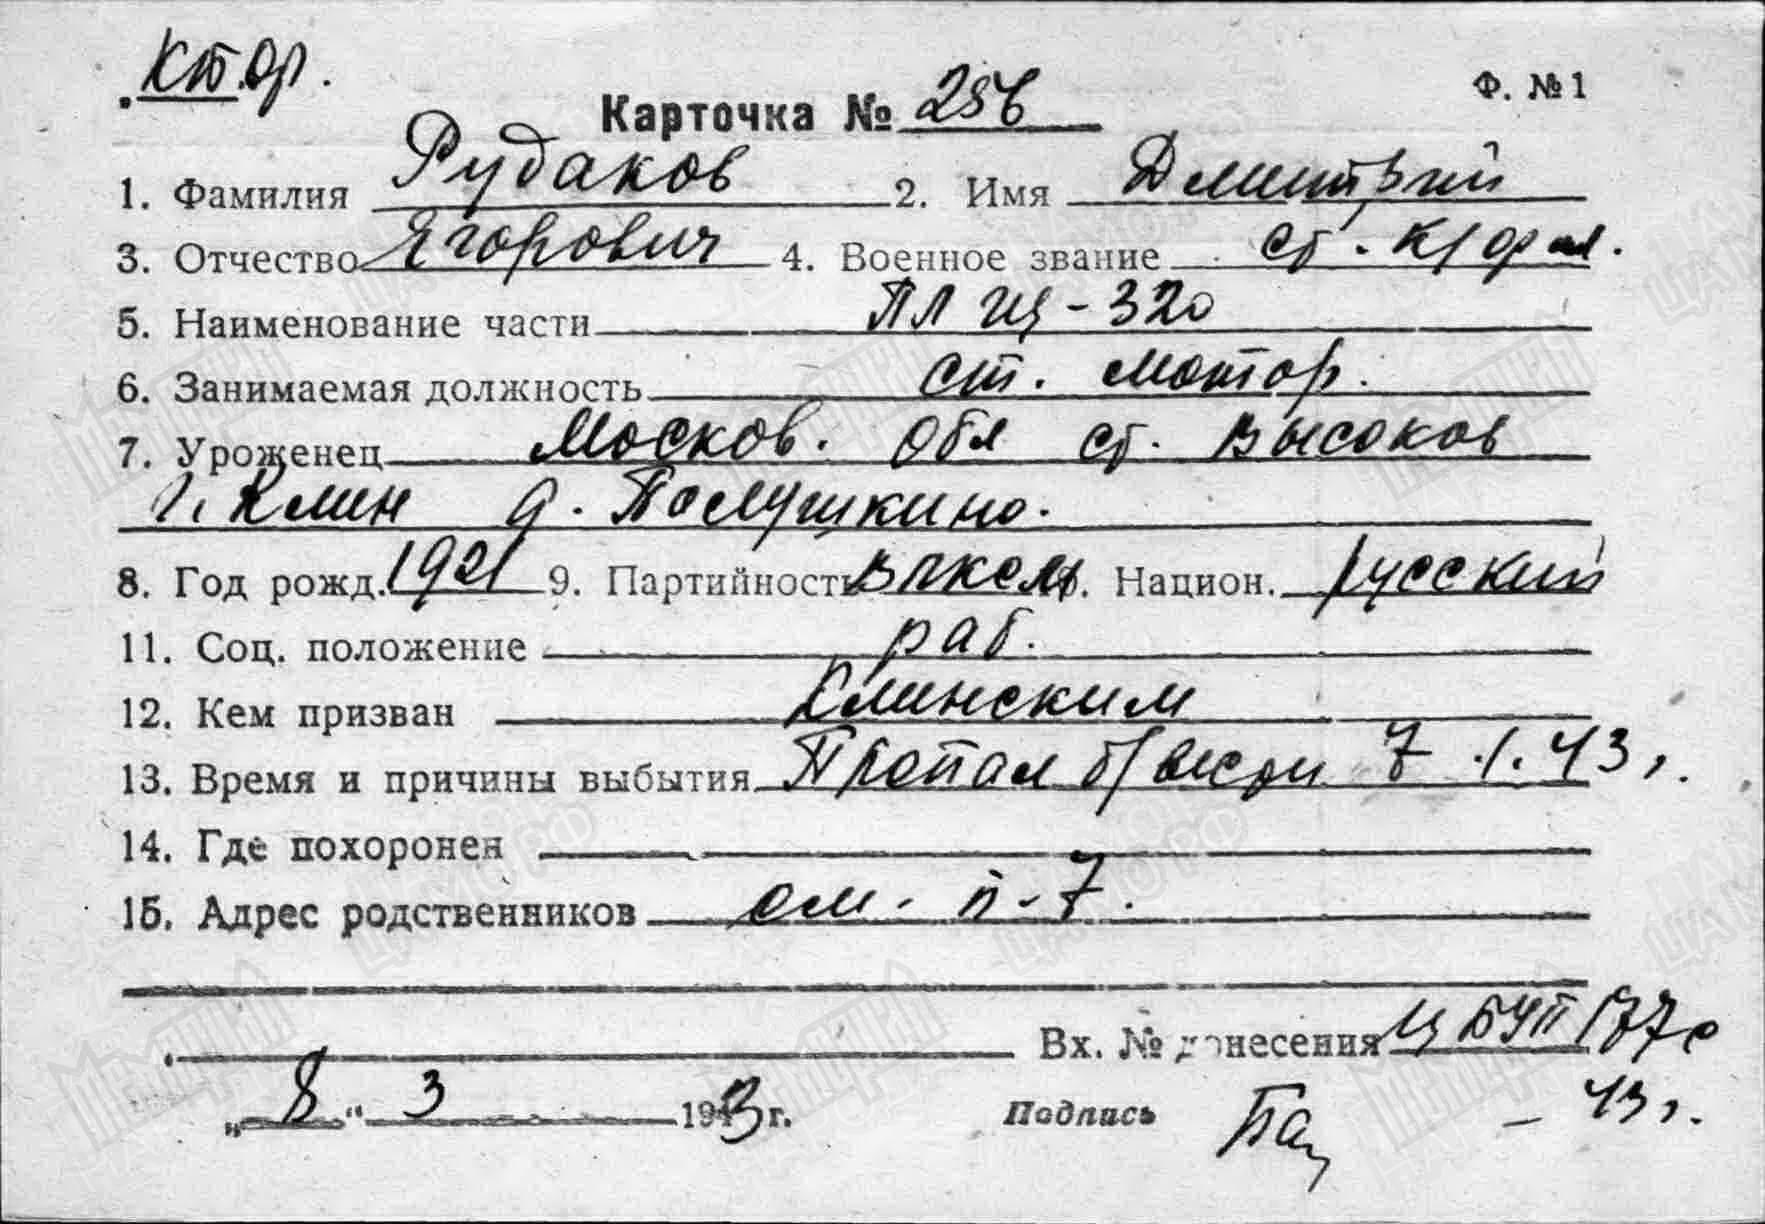 Кт.ор.
Ф. №1
Карточка № 256
1. Фамилия Рудаков 2. Имя Дмитрий
3. Отчество Егорович 4. Военное звание ст. кр-фл.
5. Наименование части ПЛ Щ-320
6. Занимаемая должность ст. мотор.
7. Уроженец Москов. обл ст. Высоков
г. Клин д. Полушкино.
8. Год рожд. 1921 9. Партийность влксм 10. Национ. русский
11. Соц. положение раб.
12. Кем призван Клинским
13. Время и причины выбытия Пропал б/вести 7.1.43 г.
14. Где похоронен
15. Адрес родственников см. п-7.
Вх. № донесения ЦБУП 177с
„8“ 3 1943 г. Подпись - 43 г.